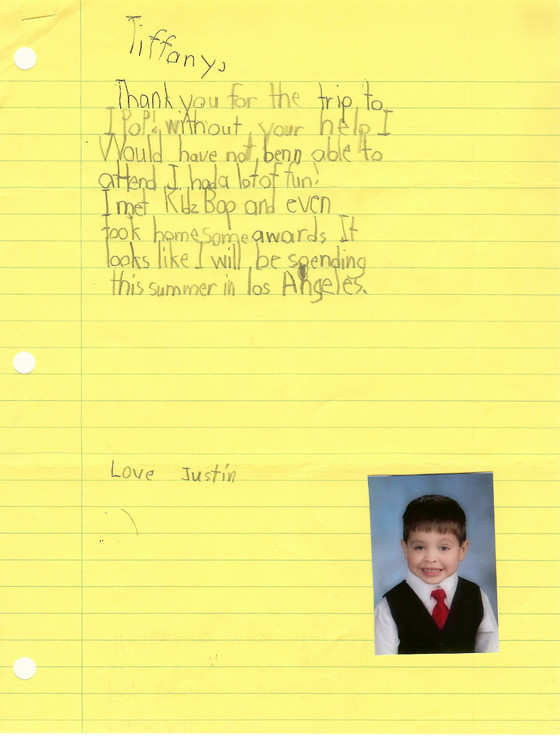 Tiffany,
Thank you for the trip to
IPoP! without your help I
Would have not benn able to
attend I had a lot of fun!
I met Kidz Bop and even
took home some awards It
looks like I will be spending
this summer in los Angeles.
Love Justin
:)